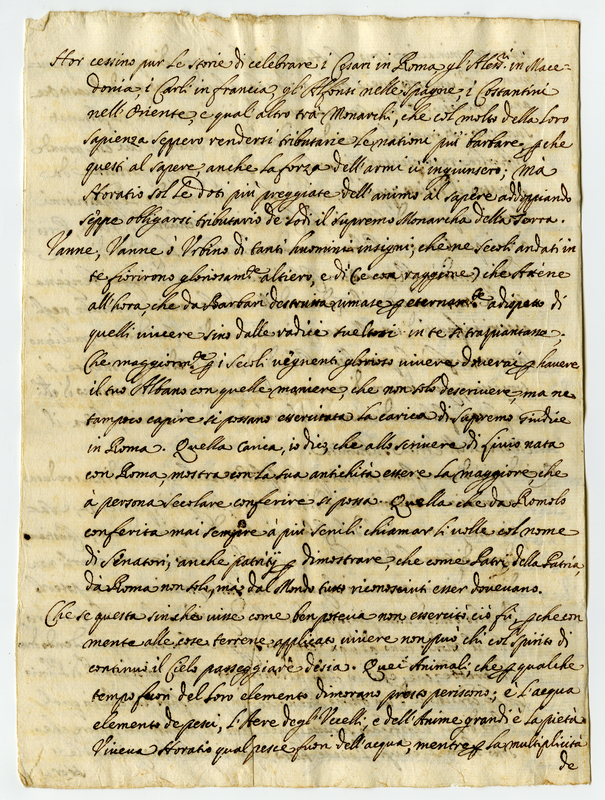 Hor cessino pur le storie di celebrare i Cesari in Roma gl'Aless:i in Mace=
donia, i Carli in francia, gl'Alfonsi nelle Spagne i Costantini
nell'Oriente, e qual altro trà Monarchi, che col molto della loro
sapienza seppero rendersi tributarie le nationi più barbare, p che
questi al sapere, anche la forza dell'armi ui ingiunsero; mà
Horatio sol le doti più preggiate dell'animo al sapere addoppiando
seppe obligarsi tributario de lodi il supremo Monarcha della Terra.
Vanne, Vanne ò Vrbino di tanti huomini insigni, che ne secoli andati in
te fiorirono gloriosam:te altiero, e di (e con raggione) che Atene
all'hora, che da Barbari destrutta rimase p eternam:te adispetto di
quelli viuere sino dalle radice suelta in te si trapiantasse.
Che maggiorm:te p i secoli uegnenti glorioso viuere douerai p hauere
il tuo Albano con quelle maniere, che non solo descriuere, ma ne
tampoco capire si possano essercitata la carica di Supremo Giudice
in Roma. Quella Carica, io dico, che allo scriuere di Liuio nata
con Roma, mostra con la sua antichità essere la maggiore, che
à persona secolare conferire si possa. Quella che da Romolo
conferita mai sempre à più senili chiamar li volle col nome
di Senatori, anche patritij p dimostrare, che come Patri della Patria,
dà Roma non solo, ma dal Mondo tutto riconosciuti esser doueuano.
Che se questa sin che uisse come ben poteua non essercitò ciò fù, p che con
mente alle cose terrene applicata, viuere non può, chi col spirito di
continuo il Cielo passeggiare desia. Quei Animali, che p qualche
tempo fuori del loro elemento dimorano presto periscono; e l'acqua
elemento de pesci, l'Aere degl'Vccelli, e dell'Anime grandi è la pietà
Viueua Horatio qual pesce fuori dell'acqua, mentre p la multiplicità
de